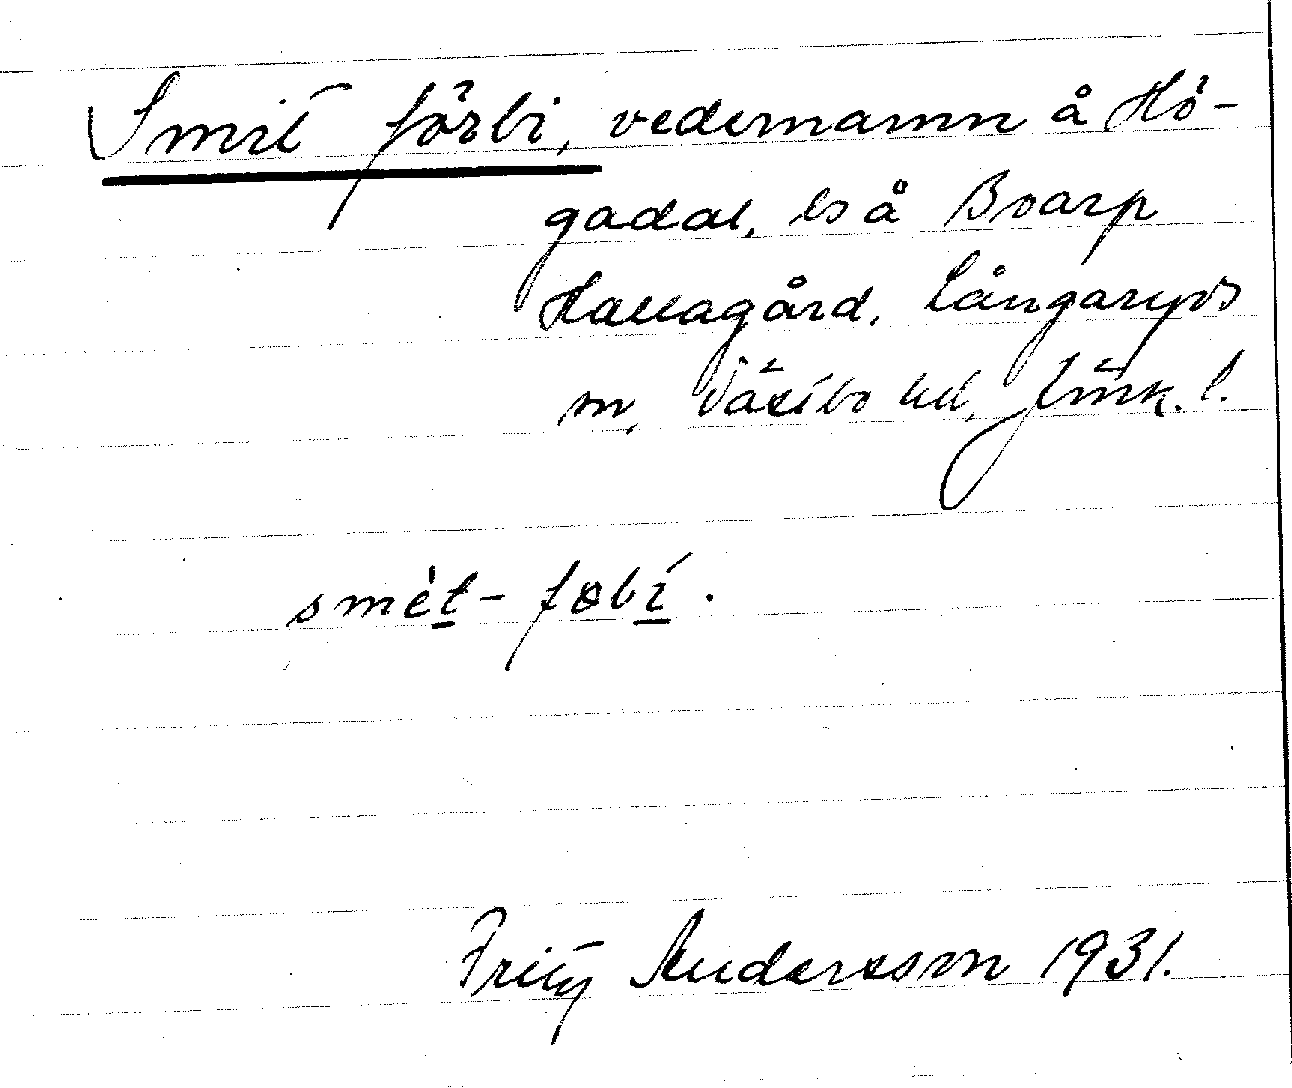 Smit förbi, vedernamn å Hö-
gadal, ls å Boarp
Hallagård, Långaryds
sn, Västbo hd, Jönk. l.
smèt - fɵbí.
Fritz Andersson 1931.